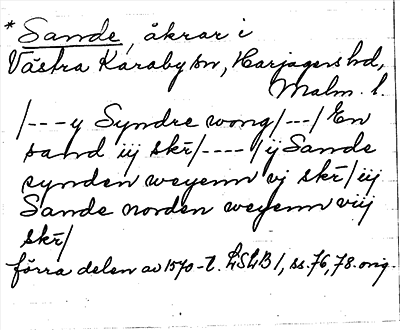 * Sande, åkrar i
Västra Karaby sn, Harjagers hd,
Malm. l.
/---y Syndre wong/---/ En
sand iij skr̄/----/ ij Sande
synden weyenn vj skr̄/iij
Sande norden weyenn viij
skr̄/
förra delen av 1570-t. LSLB 1, ss. 76, 78. orig.